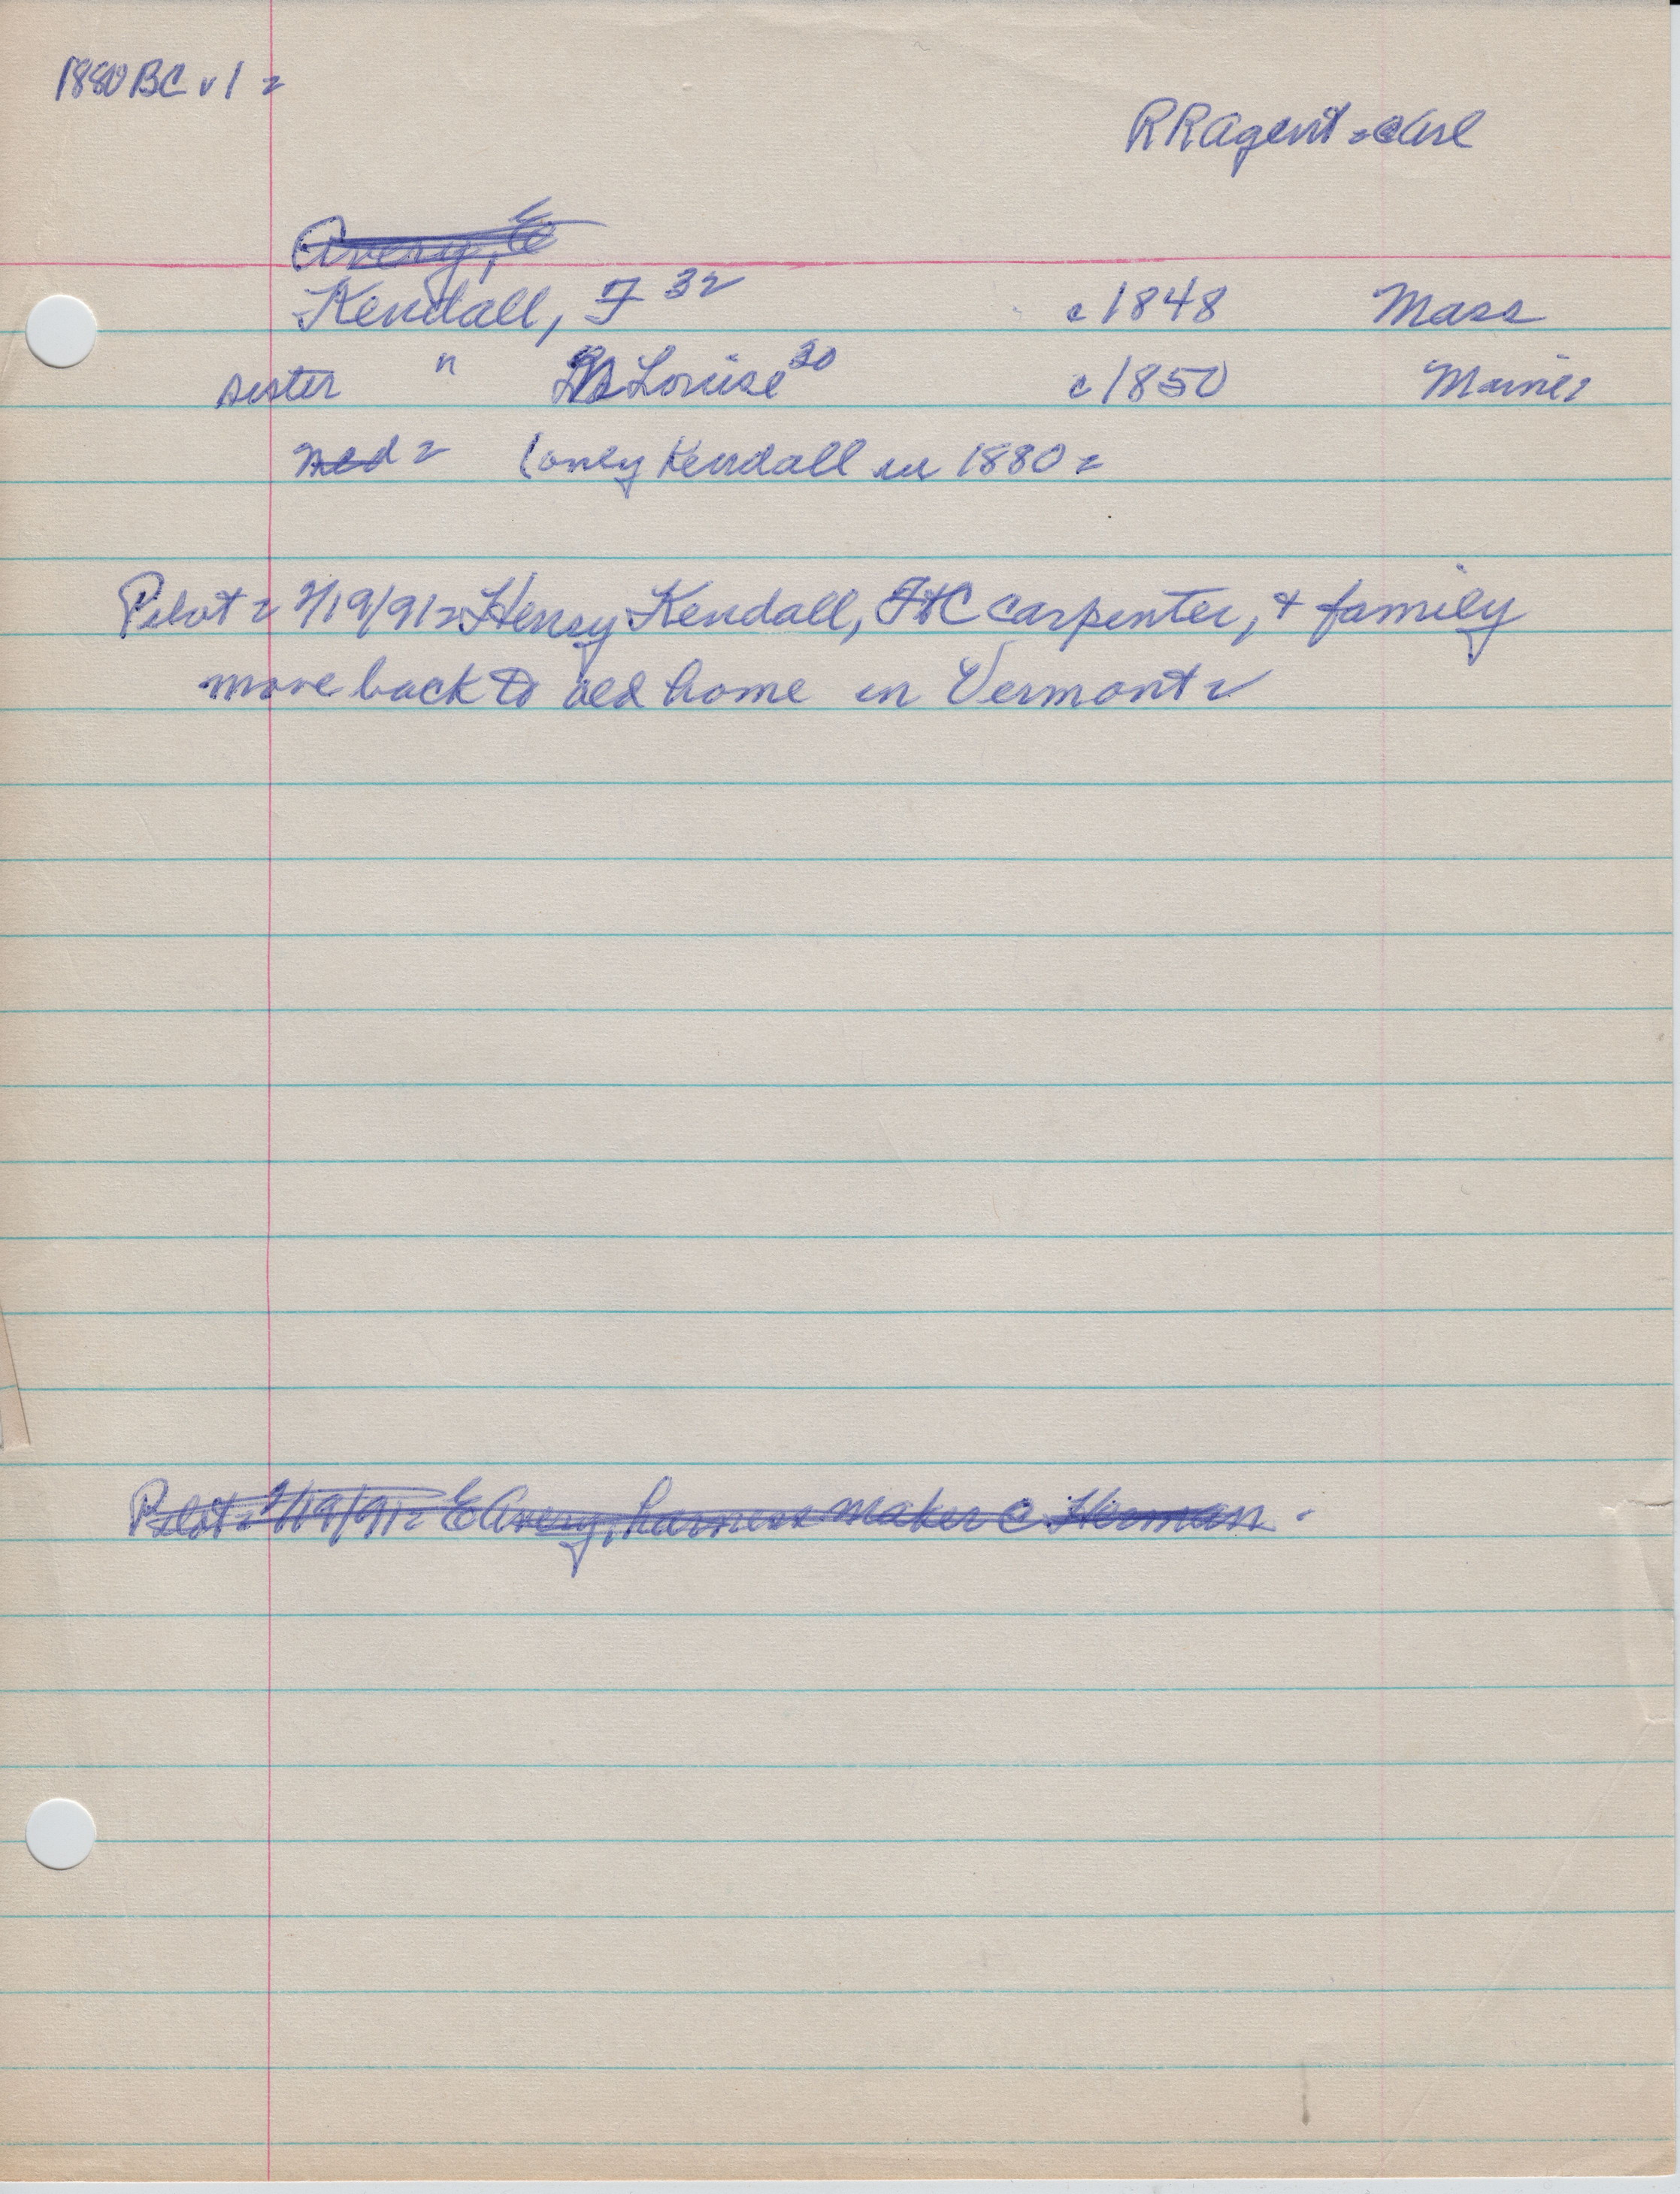 1880 BC v 1 =
RR Agent =
Avery, E
Kendall, F 32 c1848 Mass
sister " Louise 30 c1850 Maine
(only Kendall in 1880 =
Pilot = 2/19/91 = Henry Kendall, carpenter, + family
move back to old home in Vermont
Pilot = 2/19/91 = E Avery, harness maker @ Herman